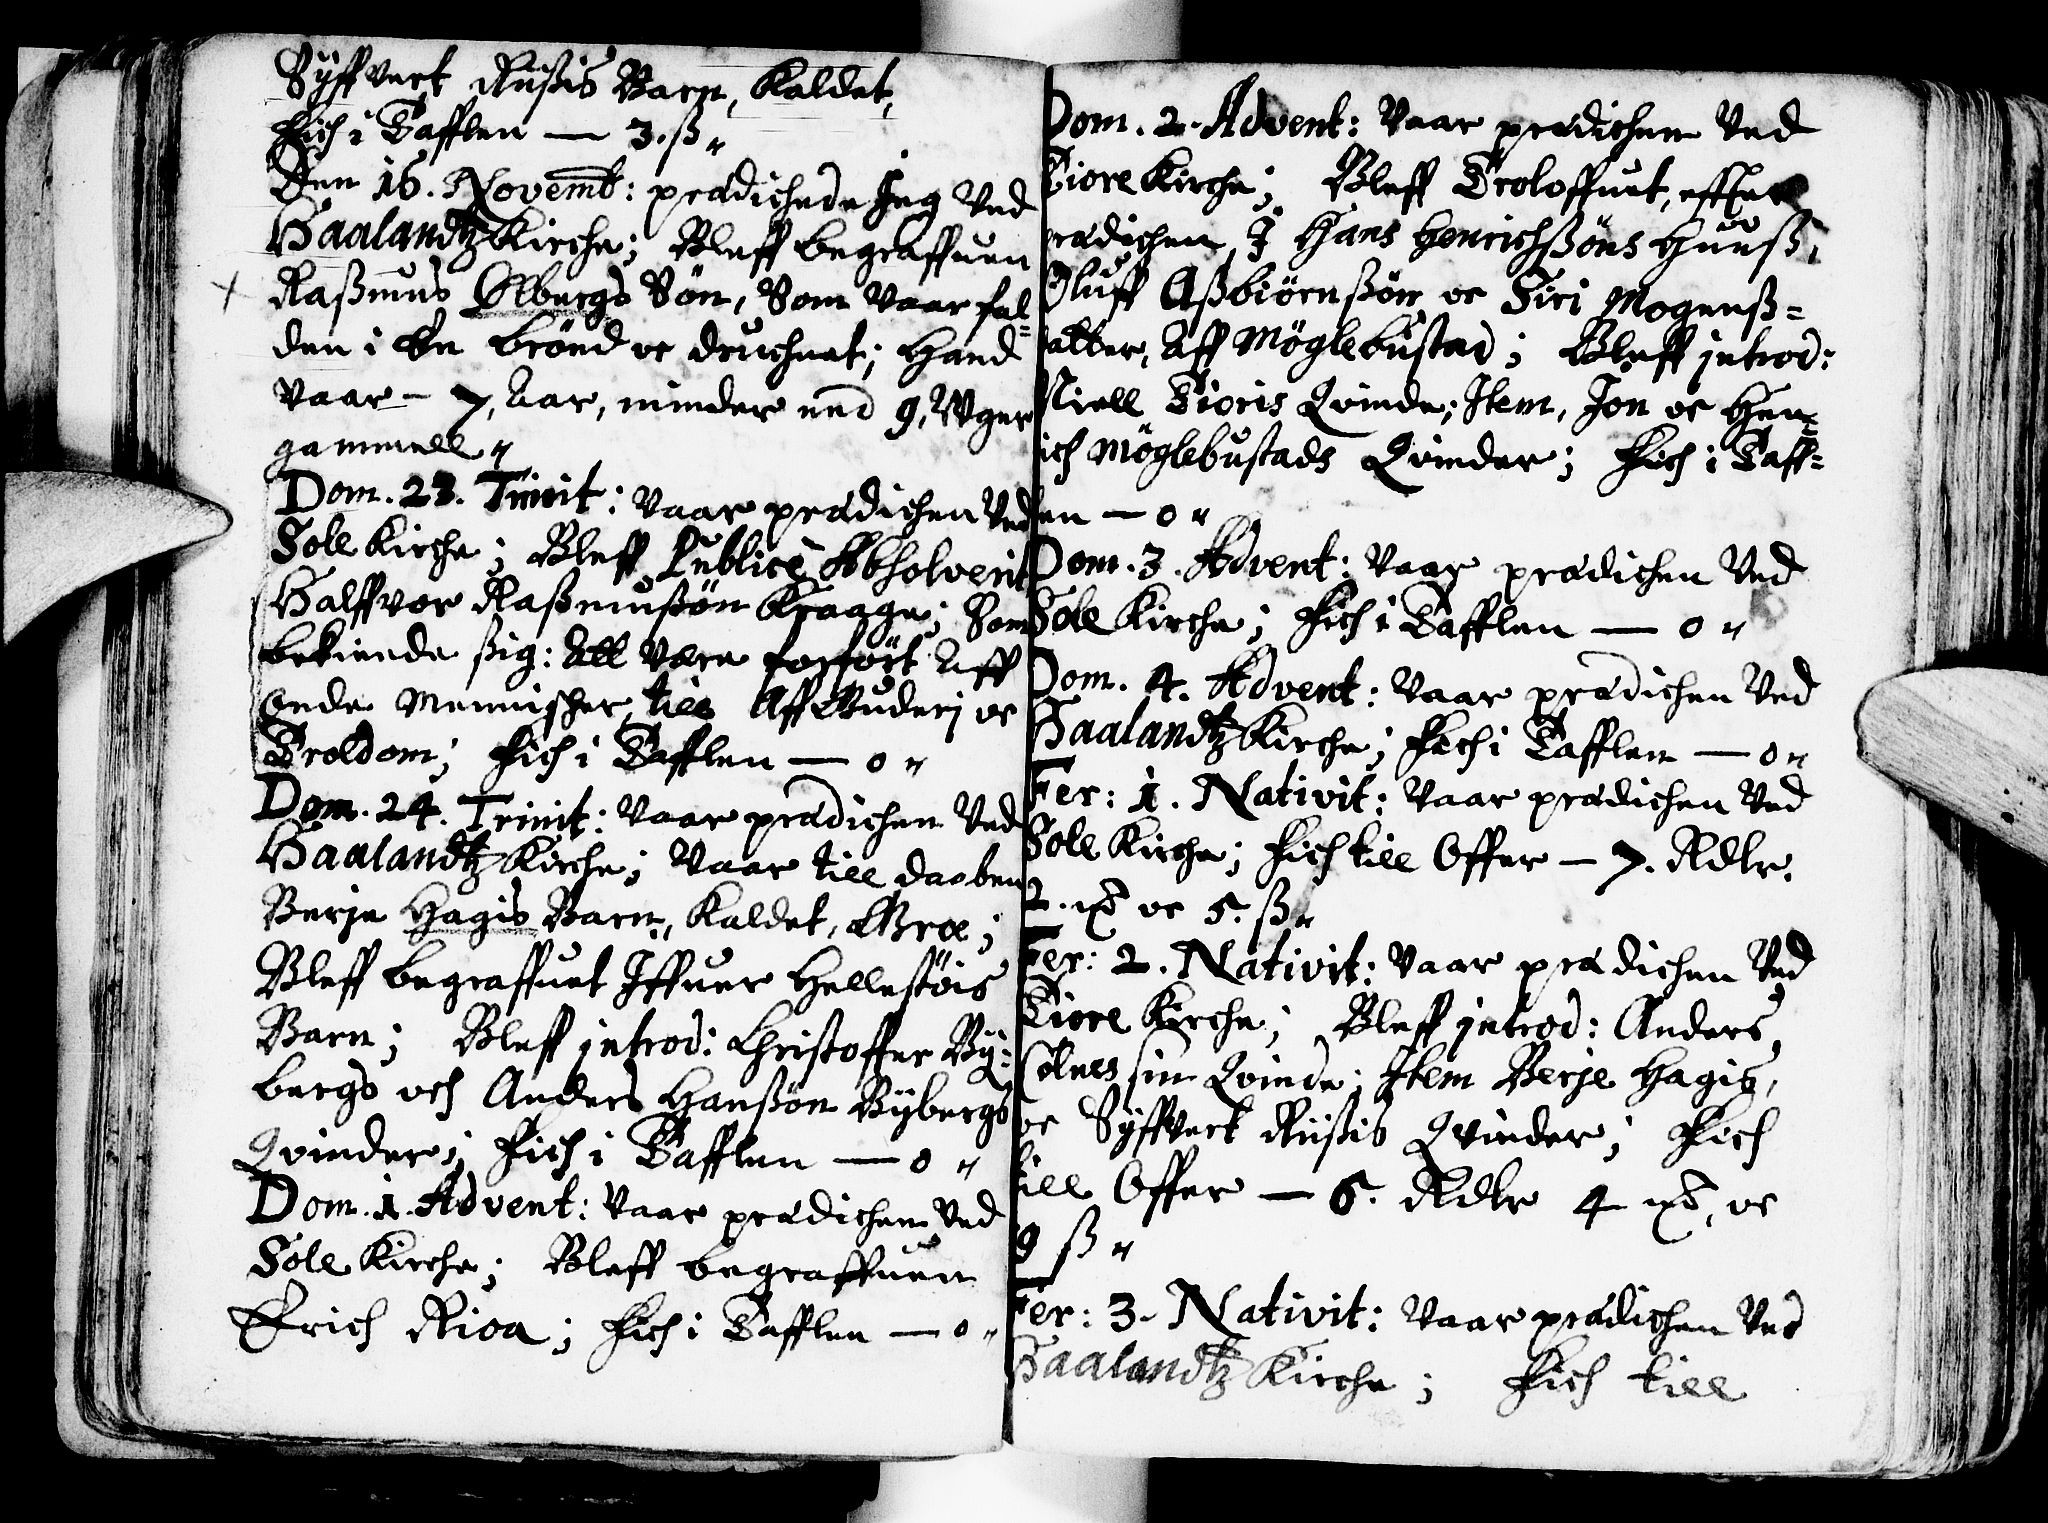 Syffvert Rüßis Barn, Kaldet,
Fich i Tafflen — 3. ß
Den 16. Novemb: prædichede Jeg Ved
Haalandtz Kirche; Bleff begraffven
+ Raßmus Ølbergs Søn, Som Vaar fal-
den i En brønd oc druchnet; Hand
Vaar - 7, Aar, minder end 9, Wger
gammell
Dom. 23. Trinit: Vaar prædichen Ved
Sole Kirche; Bleff Publicè Absolverit
Halffvor Raßmußøn Kraage; Som
bekiende ßig: Att Være forført Aff
onde Mennischer, till Aff Guderj oc
Troldom; Fich i Tafflen — 0
Dom. 24. Trinit: Vaar prædichen Ved
Haalandtz Kirche; Vaar till daaben
Berje Hagis Barn, Kaldet, Groe;
Bleff begraffvet Iffver Hellestøis
Barn; Bleff introd: Christoffer Ry-
bergs och Anders Hanßøn Rybergs
Qvinder; Fich i Tafflen — 0
Dom. 1. Advent: Vaar prædichen Ved
Sole Kirche; Bleff begraffven
Erich Rioa; Fich i Tafflen — 0
Dom. 2. Advent: Vaar prædichen Ved
Tiore Kirche; Bleff Troloffvet, effter
prædichen, I Hans Henrichßøns Huuß,
Oluff Aßbiørnßøn oc Siri Mogenß-
datter, Aff Møglebustad; Bleff introd:
Niell Tioris Qvinde; Item, Jon oc Hen-
rich Møglebustads Qvinder; Fich i Taff-
len — 0
Dom. 3. Advent: Vaar prædichen Ved
Sole Kirche; Fich i Tafflen — 0
Dom. 4. Advent: Vaar prædichen Ved
Haalandtz Kirche; Fich i Tafflen — 0
Fer: 1. Nativit: Vaar prædichen Ved
Sole Kirche; Fich till Offer — 7. Rdlr.
2. oc 5. ß
Fer: 2. Nativit: Vaar prædichen Ved
Tiore Kirche; Bleff introd: Anders
Sølnes sin Qvinde; Item Berje Hagis,
oc Syffvert Rüßis Qvinder; Fich
till Offer — 6. Rdlr 4 oc
9 ß
Fer: 3. Nativit: Vaar prædichen Ved
Haalandtz Kirche; Fich till